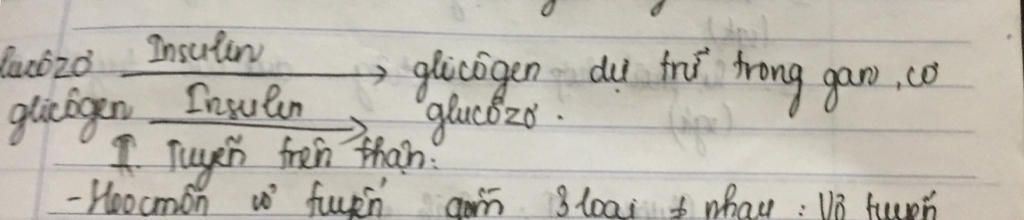 lucôzơ Insulin → glicôgen dự trữ trong gan, cơ
glicôgen Insulin → glucôzơ.
I. Tuyến trên thận:
- Hoocmôn vỏ tuyến gồm 3 loại ≠ nhau: Vỏ tuyến